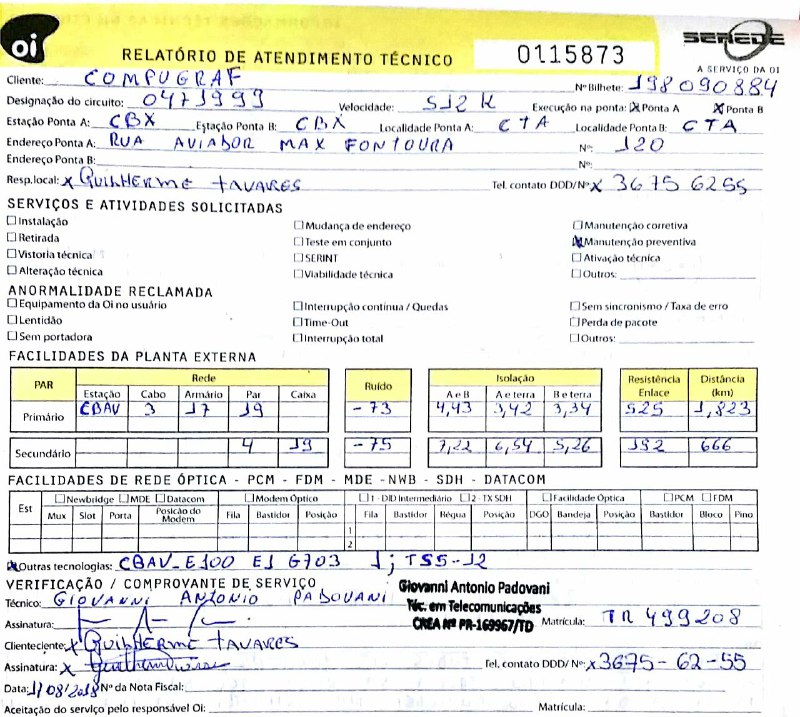 oi RELATÓRIO DE ATENDIMENTO TÉCNICO 0115873 SEREDE
A SERVIÇO DA OI
Cliente: COMPUGRAF Nº Bilhete: 198090884
Designação do circuito: 0471999 Velocidade: 512 K Execução na ponta: X Ponta A X Ponta B
Estação Ponta A: CBX Estação Ponta B: CBX Localidade Ponta A: CTA Localidade Ponta B: CTA
Endereço Ponta A: RUA AVIADOR MAX FONTOURA Nº: 120
Endereço Ponta B: Nº:
Resp. local: x GUILHERME TAVARES Tel. contato DDD/Nº x 3675 6255
SERVIÇOS E ATIVIDADES SOLICITADAS
☐ Instalação ☐ Mudança de endereço ☐ Manutenção corretiva
☐ Retirada ☐ Teste em conjunto ☒ Manutenção preventiva
☐ Vistoria técnica ☐ SERINT ☐ Ativação técnica
☐ Alteração técnica ☐ Viabilidade técnica ☐ Outros:
ANORMALIDADE RECLAMADA
☐ Equipamento da Oi no usuário ☐ Interrupção contínua / Quedas ☐ Sem sincronismo / Taxa de erro
☐ Lentidão ☐ Time-Out ☐ Perda de pacote
☐ Sem portadora ☐ Interrupção total ☐ Outros:
FACILIDADES DA PLANTA EXTERNA
PAR Rede Ruído Isolação Resistência Enlace Distância (km)
Estação Cabo Armário Par Caixa A e B A e terra B e terra
Primário CBAV 3 17 19 -73 4,43 3,42 3,34 525 1,823
Secundário 4 19 -75 7,22 6,54 5,26 192 666
FACILIDADES DE REDE ÓPTICA - PCM - FDM - MDE - NWB - SDH - DATACOM
Est ☐ Newbridge ☐ MDE ☐ Datacom ☐ Modem Óptico ☐ 1 - DID Intermediário ☐ 2 - TX SDH ☐ Facilidade Óptica ☐ PCM ☐ FDM
Mux Slot Porta Posição do Modem Fila Bastidor Posição Fila Bastidor Régua Posição DGO Bandeja Posição Bastidor Bloco Pino
1
2
☒ Outras tecnologias: CBAV_E100 E1 G703 1; TS5-12
VERIFICAÇÃO / COMPROVANTE DE SERVIÇO
Técnico: GIOVANNI ANTONIO PADOVANI
Giovanni Antonio Padovani
Téc. em Telecomunicações
CREA Nº PR-169967/TD
Assinatura: Matrícula: TR 499208
Clienteciente: x GUILHERME TAVARES
Assinatura: x Tel. contato DDD/Nº: x 3675-62-55
Data: 1/08/2018 Nº da Nota Fiscal:
Aceitação do serviço pelo responsável Oi: Matrícula: